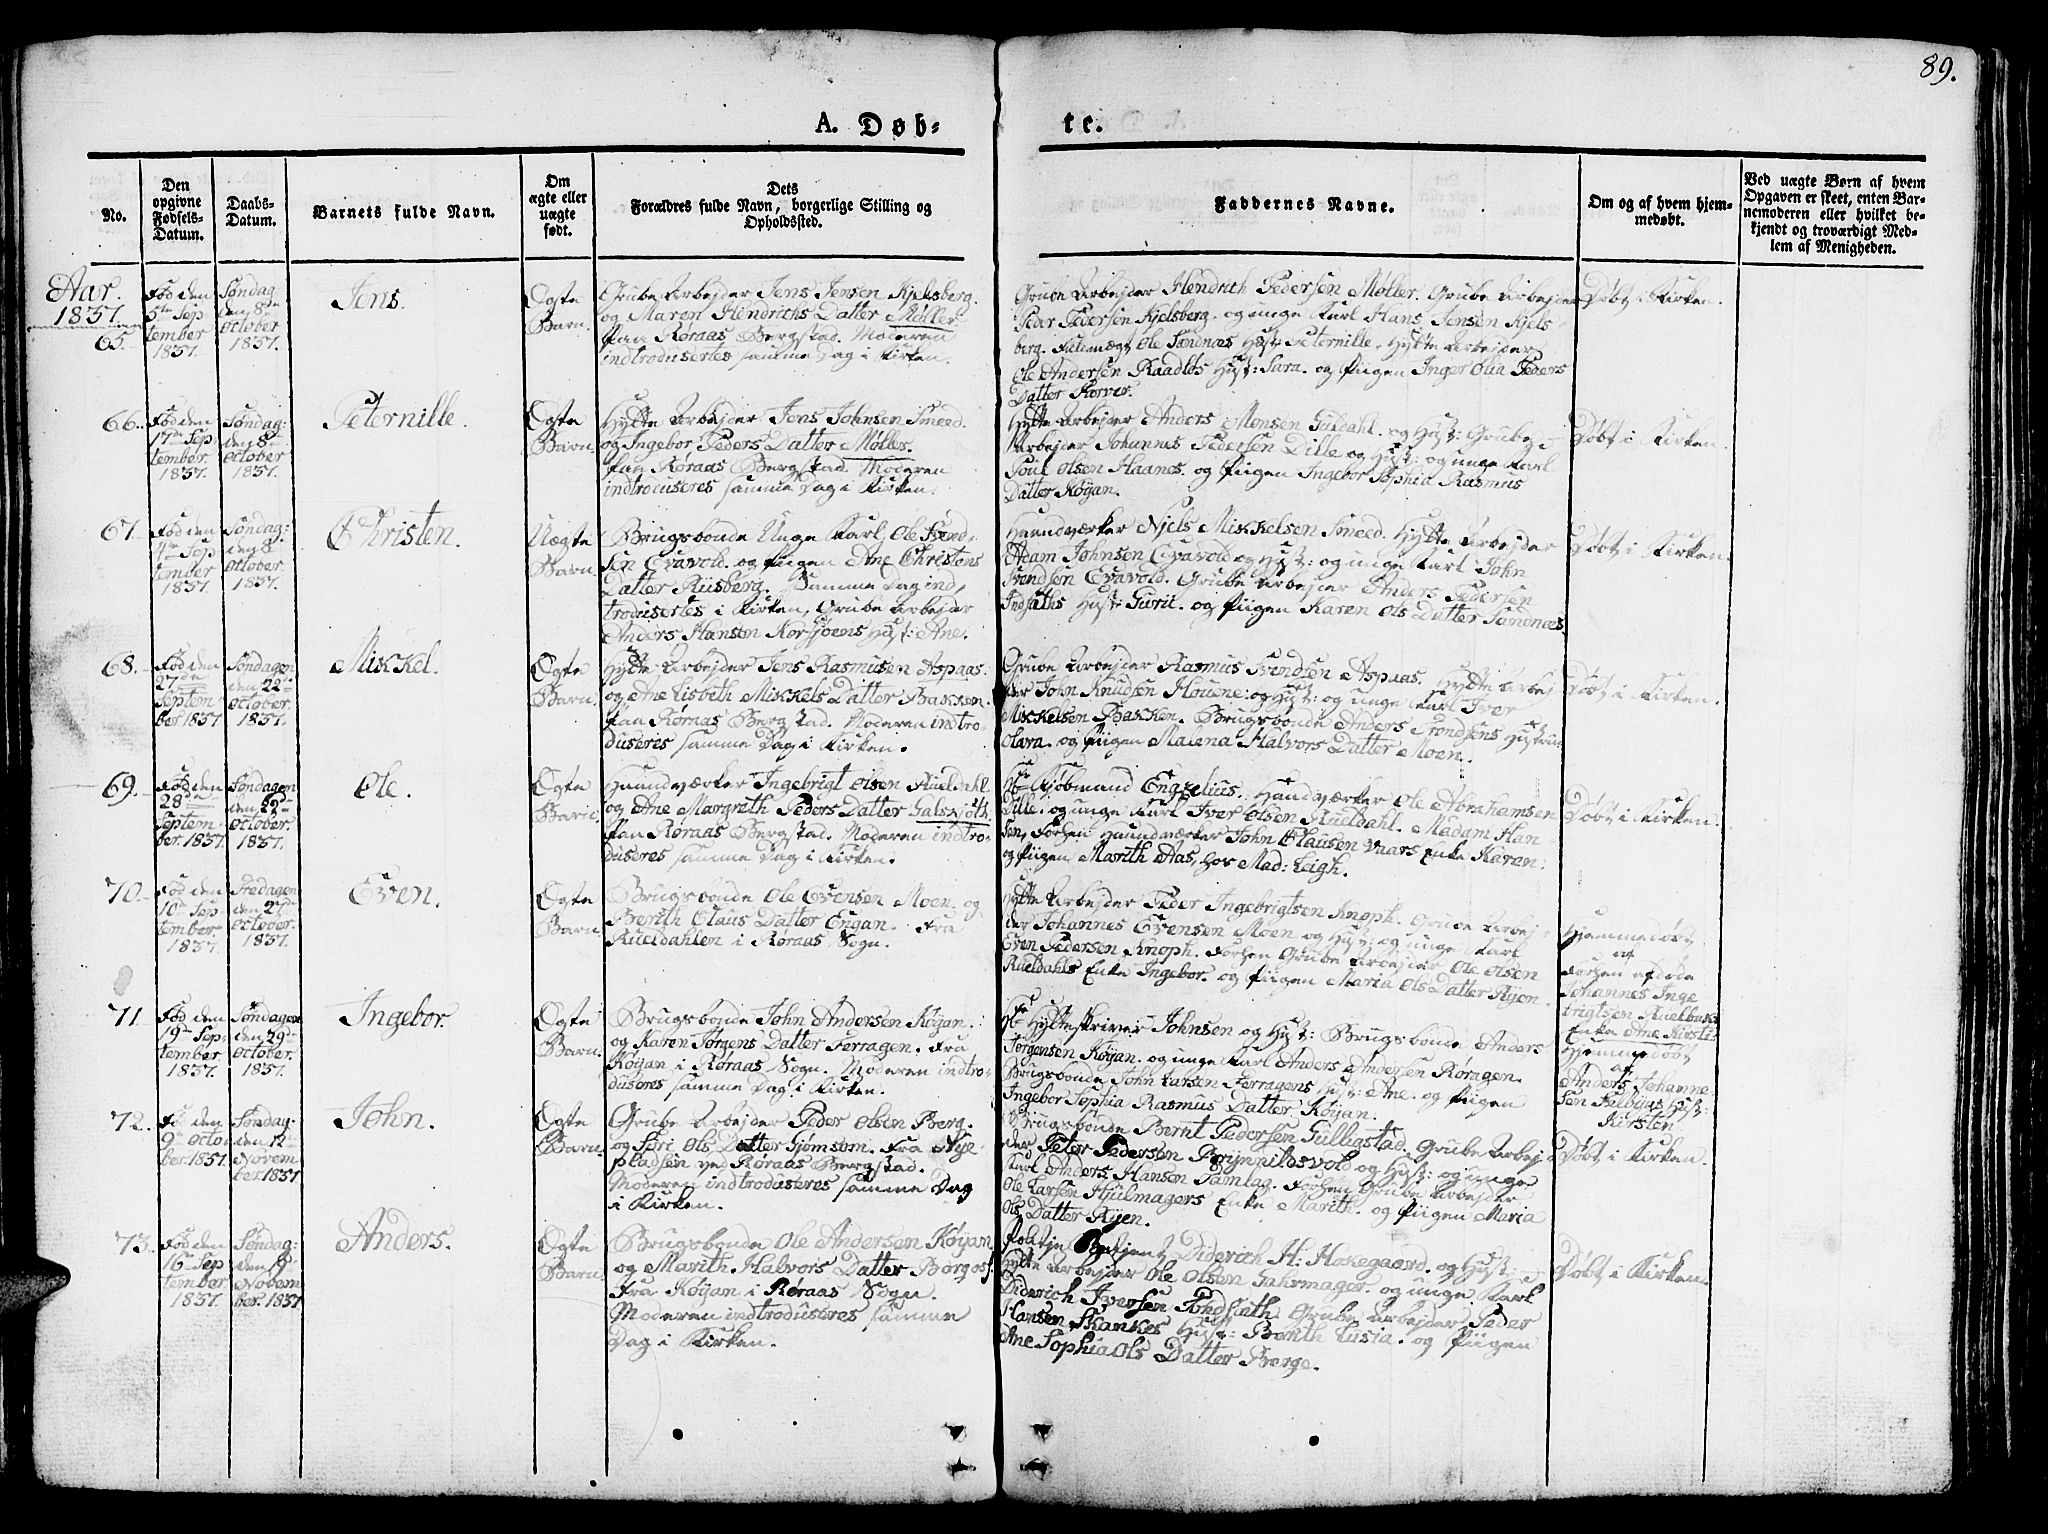 89.
A. Døb-
te.
No.
Den
opgivne
Fødsels-
Datum.
Daabs-
Datum.
Barnets fulde Navn.
Om
ægte eller
uægte
født.
Dets
Forældres fulde Navn, borgerlige Stilling og
Opholdssted.
Faddernes Navne.
Om og af hvem hjem-
medøbt.
Ved uægte Børn af hvem
Opgaven er skeet, enten Bar-
nemoderen eller hvilket be-
kjendt og troværdigt Med-
lem af Menigheden.
Aar.
1837.
65.
Fød den
5te Sep
tember
1837.
Søndag
den 8de
October
1837.
Jens.
Egte
Barn.
Grube Arbejder Jens Jensen Kjelsberg.
og Maren Hendrichs Datter Møller.
fan Røraas Bergstad. Moderen
indtroduseres samme Dag i Kirken.
Grube Arbejder Hendrith Pedersen Møller. Grube Arbejder
Peder Pedersen Kjelsberg. og unge Karl Hans Jensen Kjels
berg. Ole Sandnæs Hust: Peternille, Hytte Arbejder
Ole Andersen Raadlos Hust: Sara. og Piigen Inger Olia Peders
Datter Korver.
Døbt i Kirken.
66.
Fød den
17de Sep
tember
1837.
Søndag:
den 8de
October
1837.
Peternille.
Egte
Barn.
Hytte Arbejder Jens Johnsen Smeed.
og Ingebor Peders Datter Møller.
fan Røraas Bergstad. Moderen
indtroduseres samme Dag i Kirken.
Hytte Arbejder Anders Monsen Guldahl. og Hust: Grube
Arbejder Johannes Pedersen Dille og Hust: og unge Karl
Poul Olsen Haanes. og Piigen Ingebor Sophia Rasmus
Datter Køyan.
Døbt i Kirken.
67.
Fød den
4de Sep
tember
1837.
Søndag:
den 8de
October
1837.
Christen.
Uægte
Barn.
Brugsbonde Unge Karl Ole Svend-
sen Evavold. og Piigen Ane Christens
Datter Riisberg. Samme Dag ind,
trodusertes i Kirken, Grube Arbejder
Anders Hansen Korsjoens Hust: Ane.
Haandværker Njels Mikkelsen Smeed. Hytte Arbejder
Adam Johnsen Evavold og Hust: og unge Karl John
Svendsen Evavold. Grube Arbejder Anders Pedersen
Indsæths Hust: Gurii. og Piigen Karen Ols Datter Sandnæs.
Døbt i Kirken.
68.
Fød den
27de
Septem-
ber. 1837
Søndagen
den 22de
October.
1837.
Mikkel.
Egte
Barn.
Hytte Arbejder Jens Rasmusen Aspaas.
og Ane Lisbeth Mikkels Datter Bakken.
fan Røraas Bergstad. Moderen indtro-
duseres samme Dag i Kirken.
Grube Arbejder Rasmus Svendsen Aspaas. Hytte Arbej
der John Knudsen Houene: og Hust: og unge Karl Iver
Mikkelsen Bakken. Brugsbonde Anders Trondsens Hustru
Olara. og Piigen Malena Halvors Datter Moen.
Døbt i Kirken.
69.
Fød den
28de
Septem
ber. 1837
Søndagen
den 22de
October.
1837.
Ole.
Egte
Barn.
Haandværker Ingebrigt Olsen Rueldahl.
og Ane Margreth Peders Datter Galskjøth.
fan Røraas Bergstad. Moderen indtro-
duseres samme Dag i Kirken.
Hr Kjøbmand Engzelius. Handværker Ole Abrahamsen
Dille. og unge Karl Iver Olsen Rueldahl. Madam Han
sen, Forhen Haandværker John Clausen Vaars Enke Karen:
og Piigen Marith Aas, hos Mad: Leigh.
Døbt i Kirken.
70.
Fød den
10de Sep
tember
1837.
Fredagen
den 27de
October.
1837.
Even.
Egte
Barn.
Brugsbonde Ole Evensen Moen. og
Berith Claus Datter Engan. Fra
Rueldahlen i Røraas Sogn.
Hytte Arbejder Peder Ingebrigtsen Knoph. Grube Arbej
der Johannes Evensen Moen og Hust: og unge Karl
Even Pedersen Knoph. Forhen Grube Arbejder Ole Olsen
Rueldahls Enke Ingebor. og Piigen Maria Ols Datter Ryen.
Hjemmedøbt
af
Forhen afdøde
Johannes Inge
brigtsen
Enke Ane Kirsti
71.
Fød den
19de Sep
tember.
1837.
Søndagen
den 29de
October.
1837.
Ingebor.
Egte
Barn.
Brugsbonde John Andersen Køyan.
og Karen Jørgens Datter Ferragen. Fra
Køyan i Røraas Sogn. Moderen indtro-
duseres samme Dag i Kirken.
Hr Hytteskriver Johnsen og Hust: Brugsbonde Anders
Jørgensen Køyan. og unge Karl Anders Andersen Røragen.
Brugsbonde John Larsen Ferragens Hust: Ane. og Piigen
Ingebor Sophia Rasmus Datter Køyan.
Hjemmedøbt
af
Anders Johanne
sen Hust:
Kirsten
72.
Fød den
9de Octo
ber. 1837
Søndag.
den 12te
Novem
ber. 1837
John.
Egte
Barn.
Grube Arbejder Peder Olsen Berg.
og Siri Ols Datter Gjømsom. Fra Nye-
pladsen ved Røraas Bergstad.
Moderen indtroduseres samme Dag
i Kirken.
Brugsbonde Bernt Pedersen Gulligstad. Grube Arbej
der Peter Pedersen Brynnildsvold og Hust: og unge
Karl Anders Hansen Tamlag. Forhen Grube Arbejder
Ole Larsen Hjulmagers Enke Marith. og Piigen Maria
Ols Datter Ryen.
Døbt i Kirken.
73.
Fød den
16de Sep
tember
1837.
Søndag:
den 19de
Novem
ber. 1837
Anders.
Egte
Barn.
Brugsbonde Ole Andersen Køyan
og Marith Halvors Datter Borgos.
Fra Køyan i Røraas Sogn.
Moderen indtroduseres samme
Dag i Kirken.
Politje Betjent Diderich H: Hokegaard. og Hust:
Hytte Arbejder Ole Olsen Fahrmager. og unge Karl
Diderich Iversen Tondsæth. Grube Arbejder Peder
Hansen Skankes Hust: Berith Lusia. og Piigen
Ane Sophia Ols Datter Berge.
Døbt i Kirken.